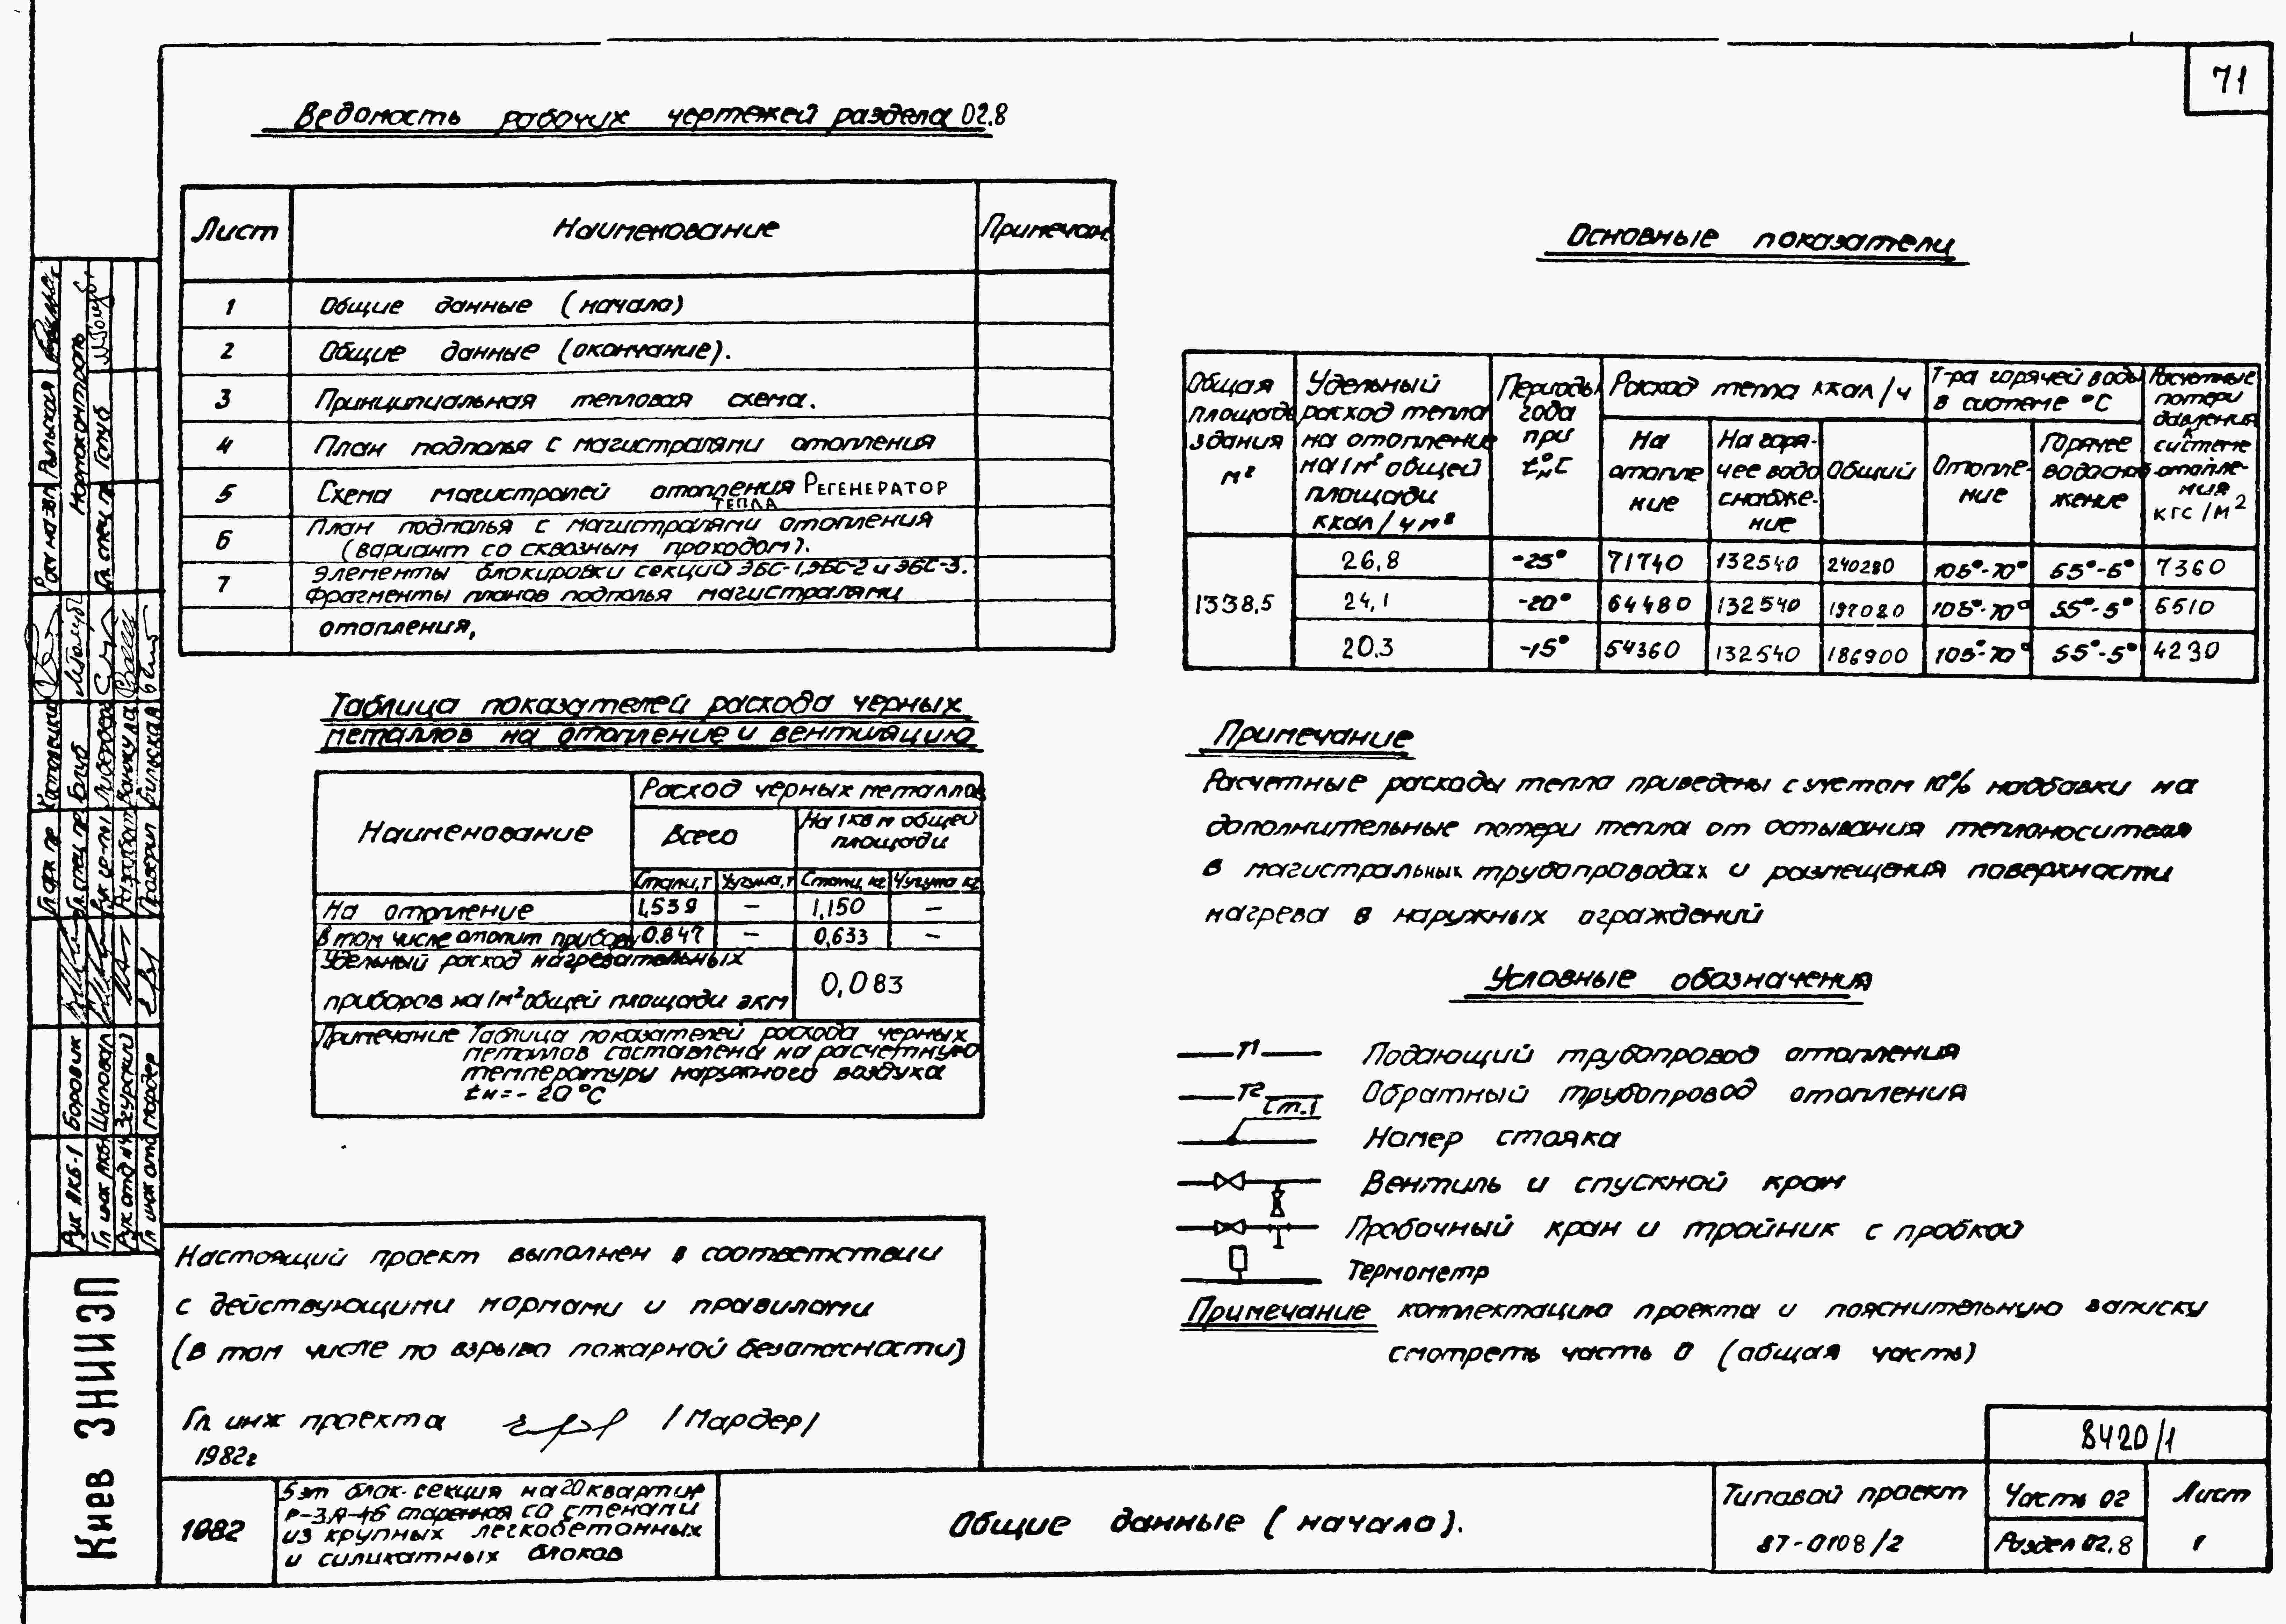 71
Ведомость рабочих чертежей раздела 02.8
Лист Наименование Примечан
1 Общие данные (начало)
2 Общие данные (окончание).
3 Принципиальная тепловая схема.
4 План подполья с магистралями отопления
5 Схема магистралей отопления Регенератор
тепла
6 План подполья с магистралями отопления
(вариант со сквозным проходом).
7 Элементы блокировки секций ЭБС-1, ЭБС-2 и ЭБС-3.
Фрагменты планов подполья магистралями
отопления,
Таблица показателей расхода черных
металлов на отопление и вентиляцию
Наименование
Расход черных металлов
Всего
На 1 кв м общей
площади
Стали, т Чугуна, т Стали, кг Чугуна кг
На отопление 1,539 — 1,150 —
В том числе отопит прибору 0.847 — 0,633 —
Удельный расход нагревательных
приборов на 1м² общей площади экм
0,083
Примечание Таблица показателей расхода черных
металлов составлена на расчетную
температуру наружного воздуха
tн = - 20°С
Настоящий проект выполнен в соответствии
с действующими нормами и правилами
(в том числе по взрыво пожарной безопасности)
Гл инж проекта /Мардер/
1982г
Основные показатели
Общая
площадь
здания
м²
Удельный
расход тепла
на отопление
на 1м² общей
площади
ккал/чм²
Периоды
года
при
tн°С
Расход тепла ккал/ч
На
отопле
ние
На горя-
чее водо
снабже-
ние
Общий
Т-ра горячей воды
в системе °С
Отопле-
ние
Горячее
водоснаб
жение
Расчетные
потери
давления
к
системе
отопле-
ния
кгс/м²
1338,5
26,8 -25° 71740 132540 240280 105°-70° 55°-5° 7360
24,1 -20° 64480 132540 197020 105°-70° 55°-5° 5510
20.3 -15° 54360 132540 186900 105°-70° 55°-5° 4230
Примечание
Расчетные расходы тепла приведены с учетом 10% надбавки на
дополнительные потери тепла от остывания теплоносителя
в магистральных трубопроводах и размещения поверхности
нагрева в наружных ограждений
Условные обозначения
Т1 Подающий трубопровод отопления
Т2 Обратный трубопровод отопления
Ст.1 Номер стояка
Вентиль и спускной кран
Пробочный кран и тройник с пробкой
Термометр
Примечание комплектацию проекта и пояснительную записку
смотреть часть 0 (общая часть)
8420/1
1982
5 эт блок-секция на 20 квартир
Р-3А-4б спаренная со стенами
из крупных легкобетонных
и силикатных блоков
Общие данные (начало).
Типовой проект
87-0108/2
Часть 02
Раздел 02.8
Лист
1
Киев ЗНИИЭП
Рук АКБ-1 Боровик
Гл инж АКБ Шаповал
Рук отд Згурский
Гл инж отд Мардер
Гл спец Голуб
Нормоконтроль